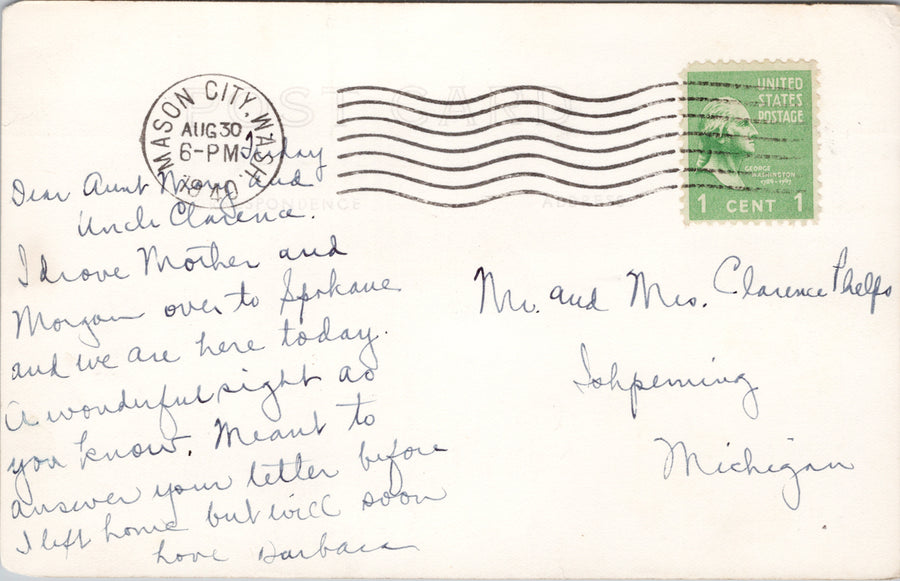 POST CARD
UNITED
STATES
POSTAGE
GEORGE
WASHINGTON
1789-1797
1 CENT 1
MASON CITY, WASH.
AUG 30
6-PM
1940
CORRESPONDENCE
ADDRESS
Friday
Dear Aunt Mary and
Uncle Clarence.
I drove Mother and
Morgan over to Spokane
and we are here today.
A wonderful sight as
you know. Meant to
answer your letter before
I left home but will soon
Love Barbara
Mr. and Mrs. Clarence Phelps
Ishpeming
Michigan